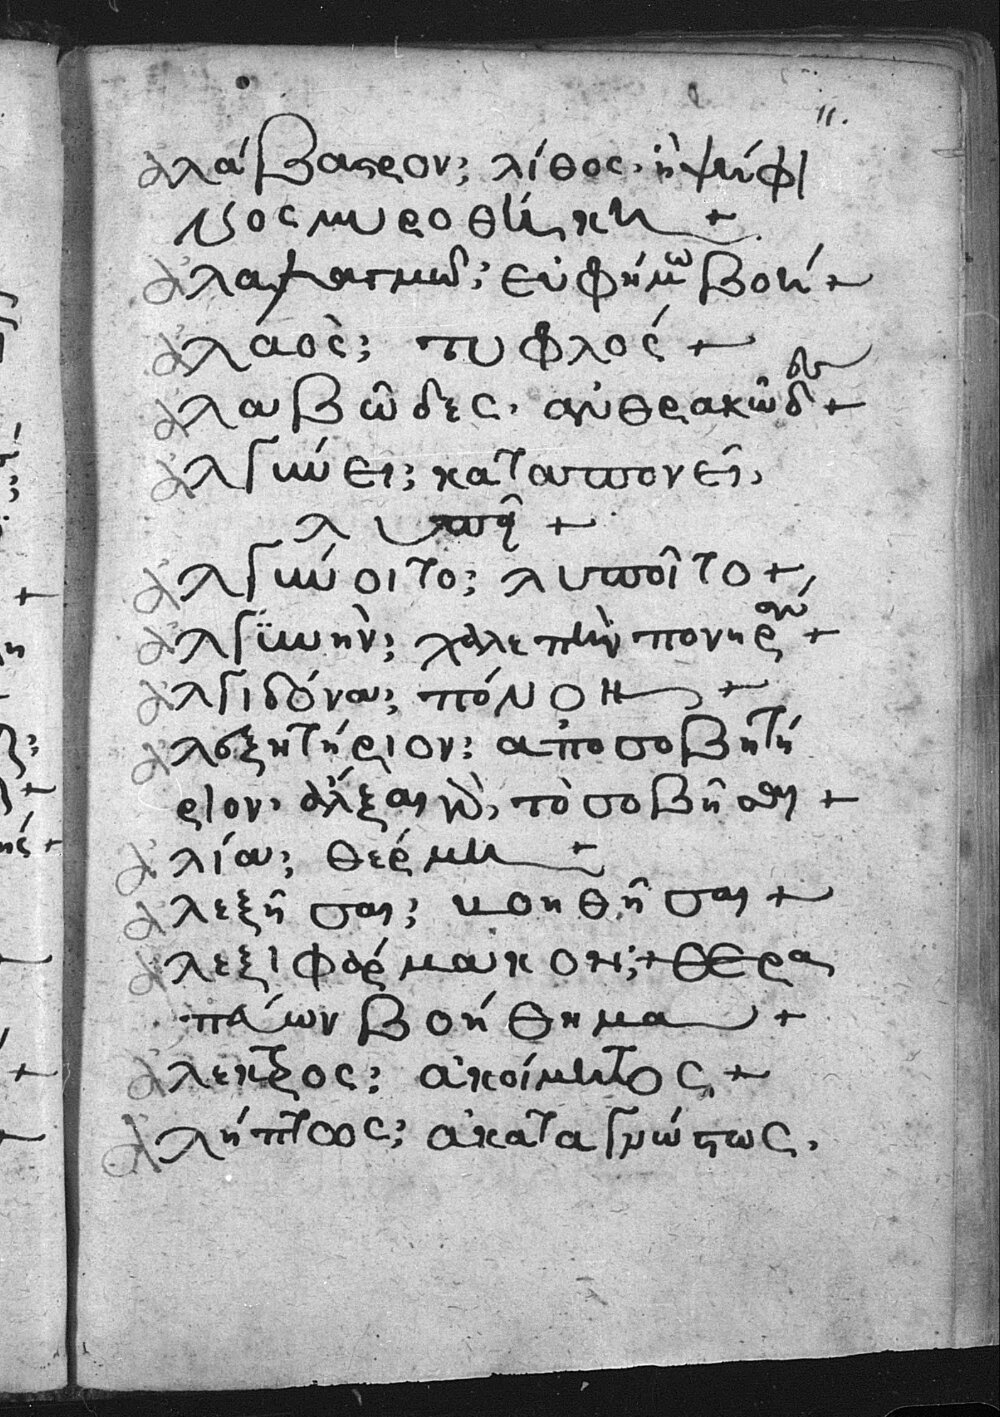 11.
ἀλάβαστρον; λίθος. ἢ ψήφι
νος μυροθήκη +
ἀλαλαγμῶ; εὐφήμω βοή +
ἀλαὸς; τυφλός +
ἀλαβῶδες. ἀνθρακῶδες +
ἀλγύνει; καταπονεῖ,
λυπεῖ +
ἀλγύνοιτο; λυποῖτο +
ἀλγεινὴν; χαλεπὴν πονηράν +
ἀλγιδόνα; πόνον +
ἀλεξητήριον; ἀποσοβητή
ριον. ἀλέξαι γὰρ, τὸ σοβῆσαι +
ἀλέα; θέρμη +
ἀλεξῆσαι; βοηθῆσαι +
ἀλεξιφάρμακον; + θερα
πεῖον βοήθημα +
ἄλεκτρος; ἀκοίμητος +
ἀλήπτως; ἀκαταγνώστως.